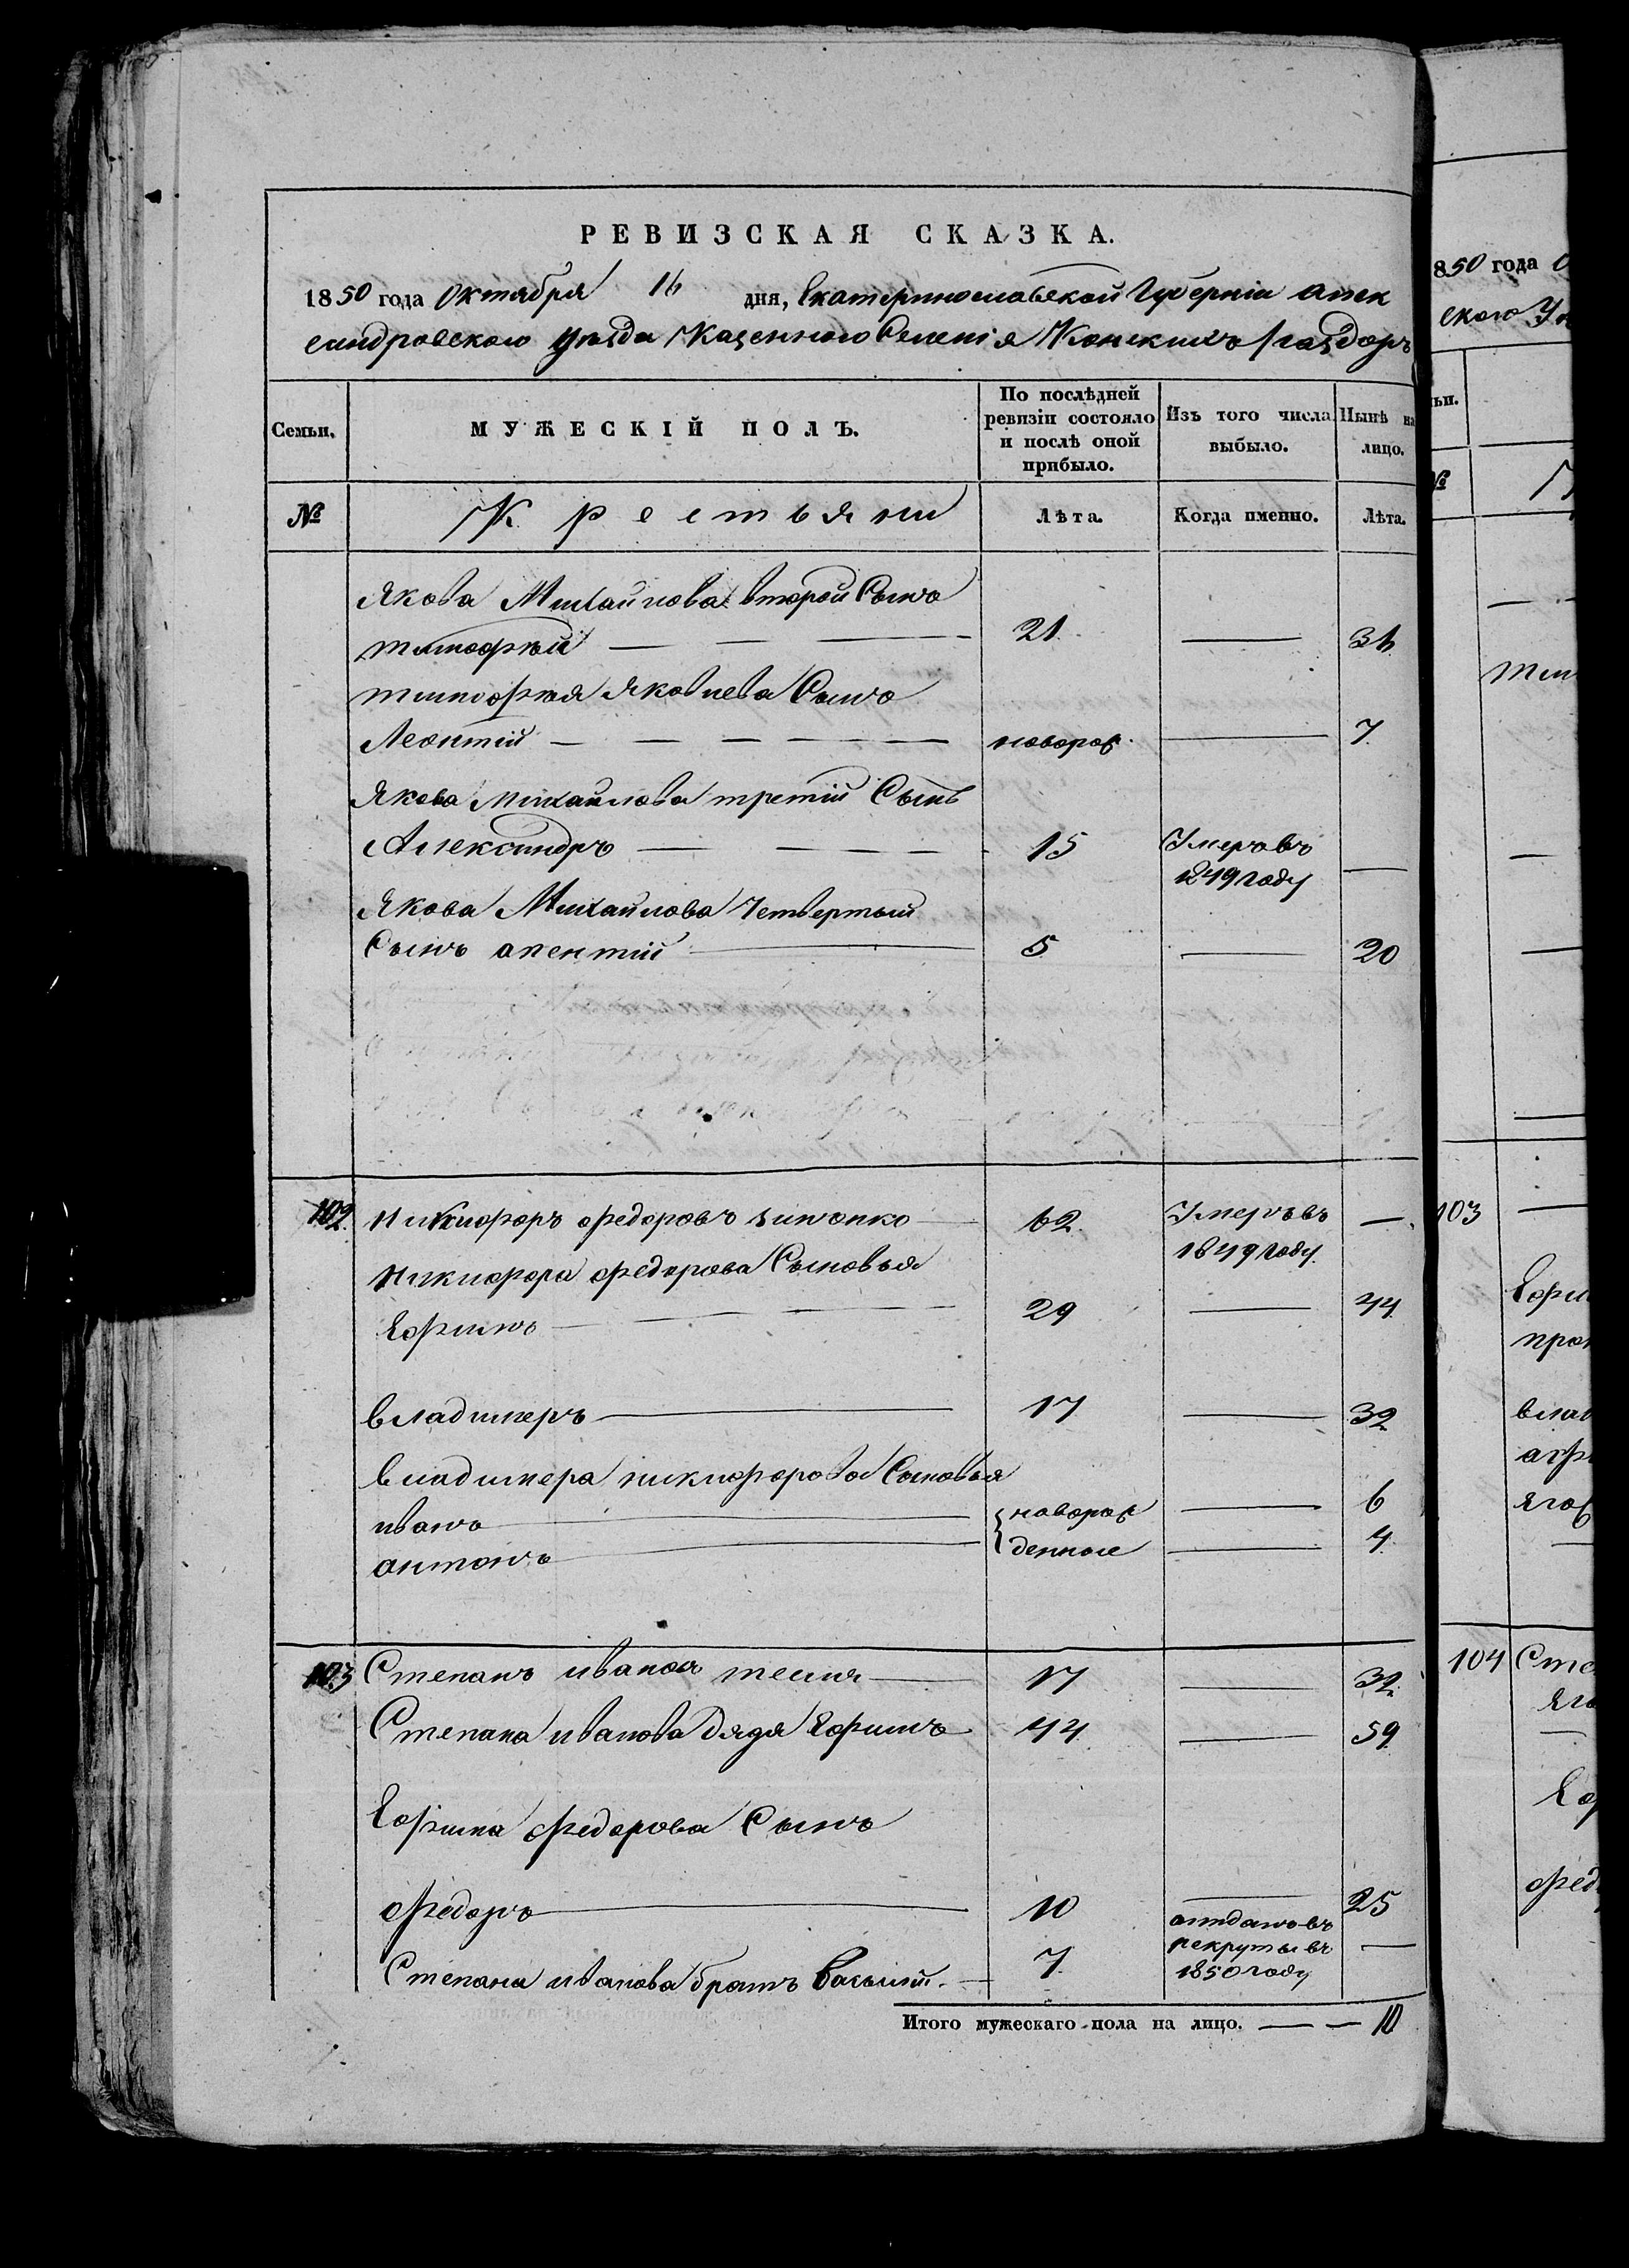 РЕВИЗСКАЯ СКАЗКА.
1850 года Октября 16 дня, Екатеринославской Губерніи алек
сандровского Уѣзда Казенного Селенія Конскихъ Раздоръ
Семьи. МУЖЕСКІЙ ПОЛЪ. По послѣдней ревизіи состояло и послѣ оной прибыло. Изъ того числа выбыло. Нынѣ на лицо.
№ Крестьяни Лѣта. Когда именно. Лѣта.
Якова Михайлова второй Сынъ
тимофѣй — — — 21 — 36
тимофѣя Яковлева Сынъ
Леонтій — — — — новорож — 7
Якова Михайлова третій Сынъ
Александръ — — — — 15 Умеръ въ —
1849 году
Якова Михайлова Четвертый
Сынъ — 5 — 20
102. Никифоръ федоровъ — 62 Умеръ въ —
1849 году
Никифора федорова Сыновья
Ефимъ — — — 29 — 44
владимеръ — 17 — 32
владимера никифорова Сыновья
иванъ — новорож — 6
антонъ — денные — 4
103 Степанъ ивановъ — 17 — 32
Степана иванова дядя Ефимъ — 44 — 59
Ефима федорова Сынъ
федоръ — 10 — 25
Степана иванова братъ василій — 7 отданъ въ
рекруты въ —
1850 году
Итого мужескаго пола на лицо. — — 10
850 года О
ского Уѣ
ьи.
№
Тим
103
Ефим
влад
104 Сте
Еф
фед